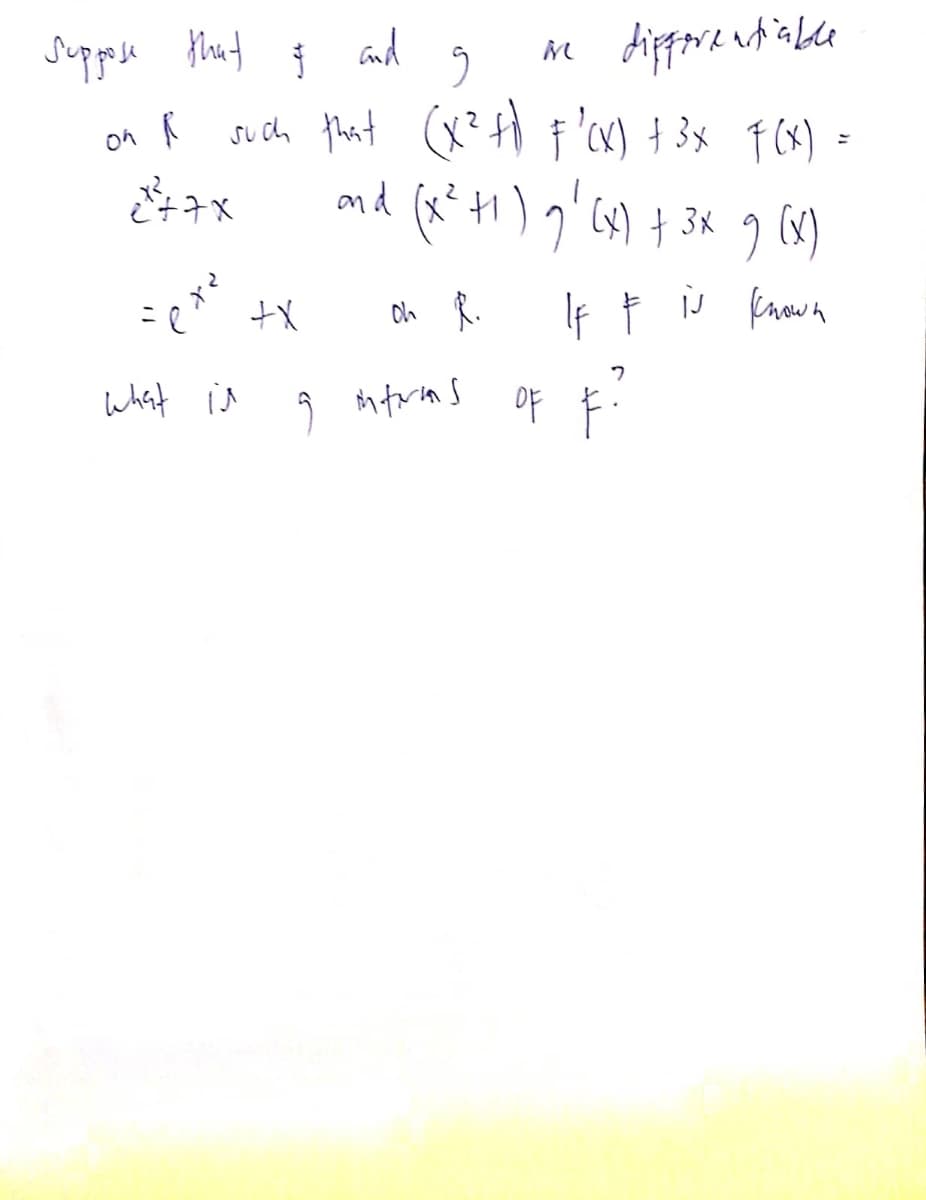 Suppose that f and g are differentiable
on R such that (x² +1) f'(x) + 3x f(x) =
e^x² + 7x and (x² +1) g'(x) + 3x g(x)
= e^x² + x on R. If f is known
what is g in terms of f?